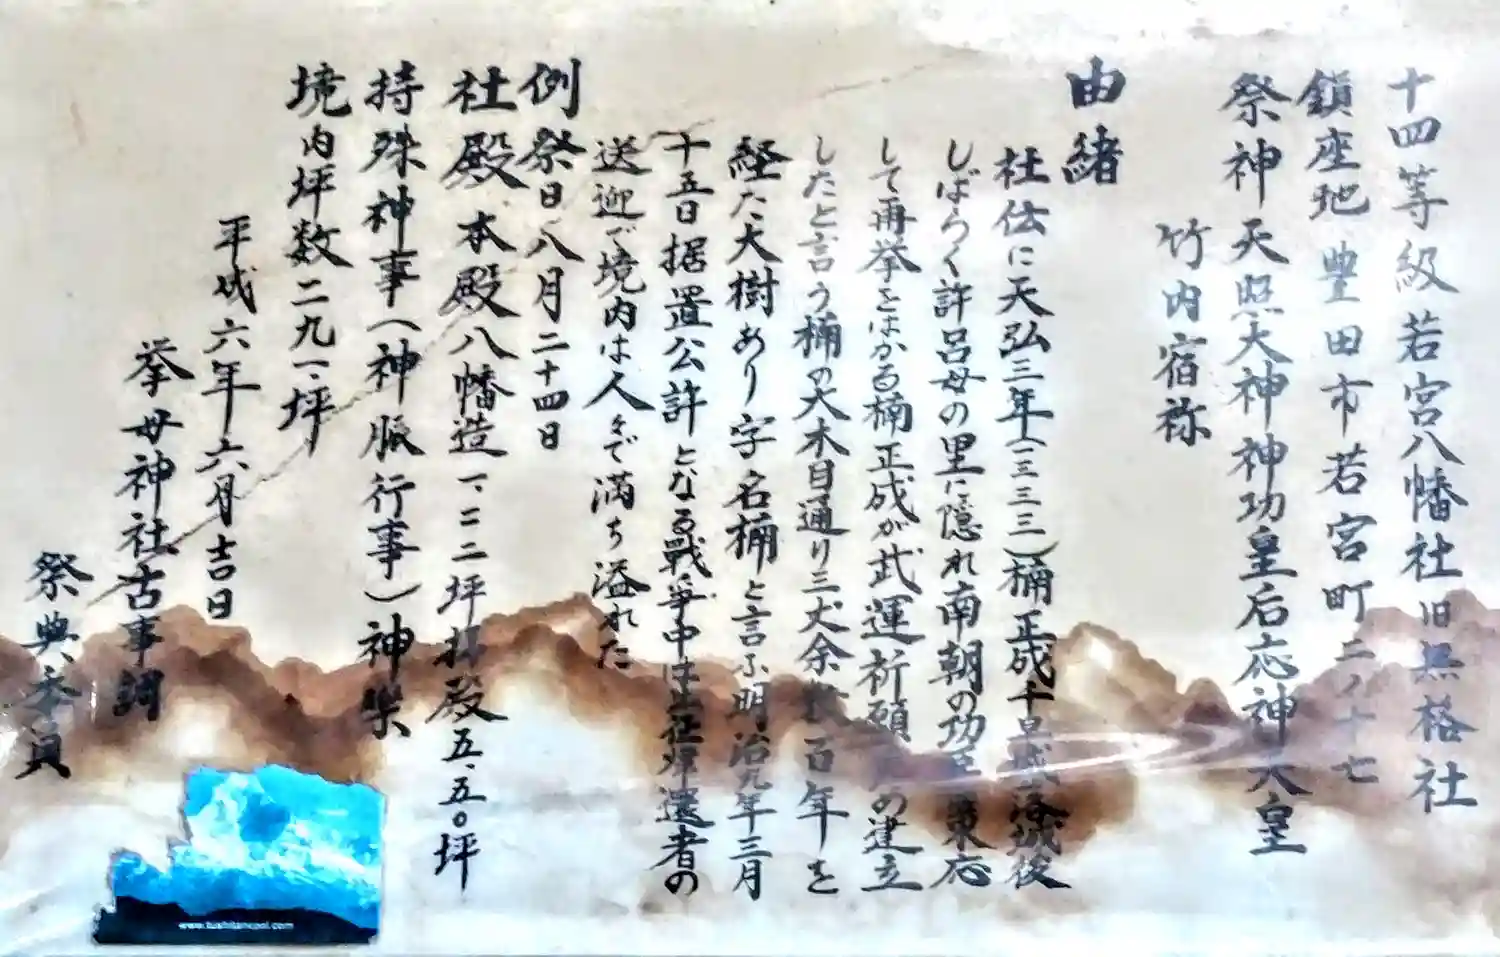 十四等級若宮八幡社旧無格社
鎮座地 豊田市若宮町二ノ十七
祭神 天照大神 神功皇后 応神天皇
竹内宿祢
由緒
社伝に天弘三年(一三三三)楠正成千早城落城後
しばらく許呂母の里に隠れ南朝の功臣 策応
して再挙をはかる楠正成が武運祈願 の建立
したと言う楠の大木目通り三丈余 百年を
経た大樹あり字名楠と言ふ明治九年三月
十五日据置公許となる戦争中は出征 還者の
送迎で境内は人々で満ち溢れた
例祭日 八月二十四日
社殿 本殿八幡造一、二二坪拝殿五、五〇坪
特殊神事(神賑行事)神楽
境内坪数二九一、坪
平成六年六月吉日
挙母神社古事調
祭典委員
www.tushitanvool.com